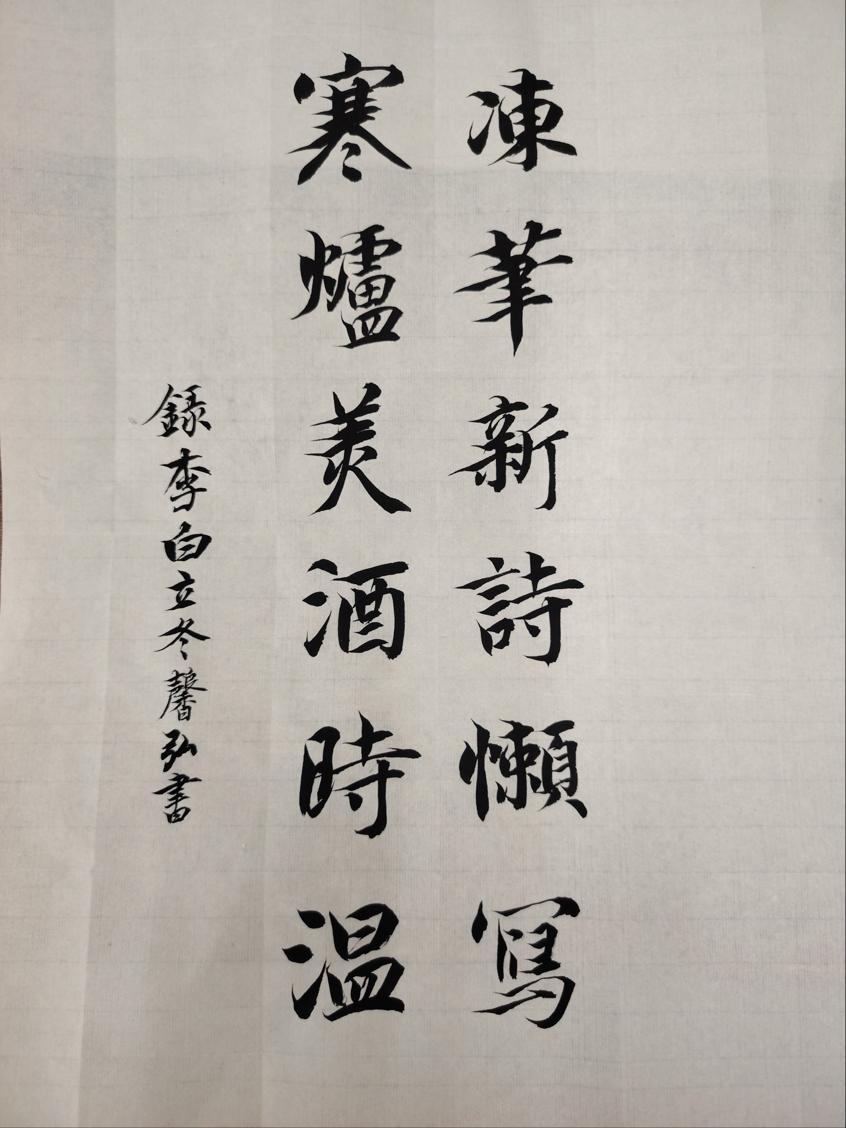 凍筆新詩懶寫
寒爐美酒時温
錄李白立冬馨弘書